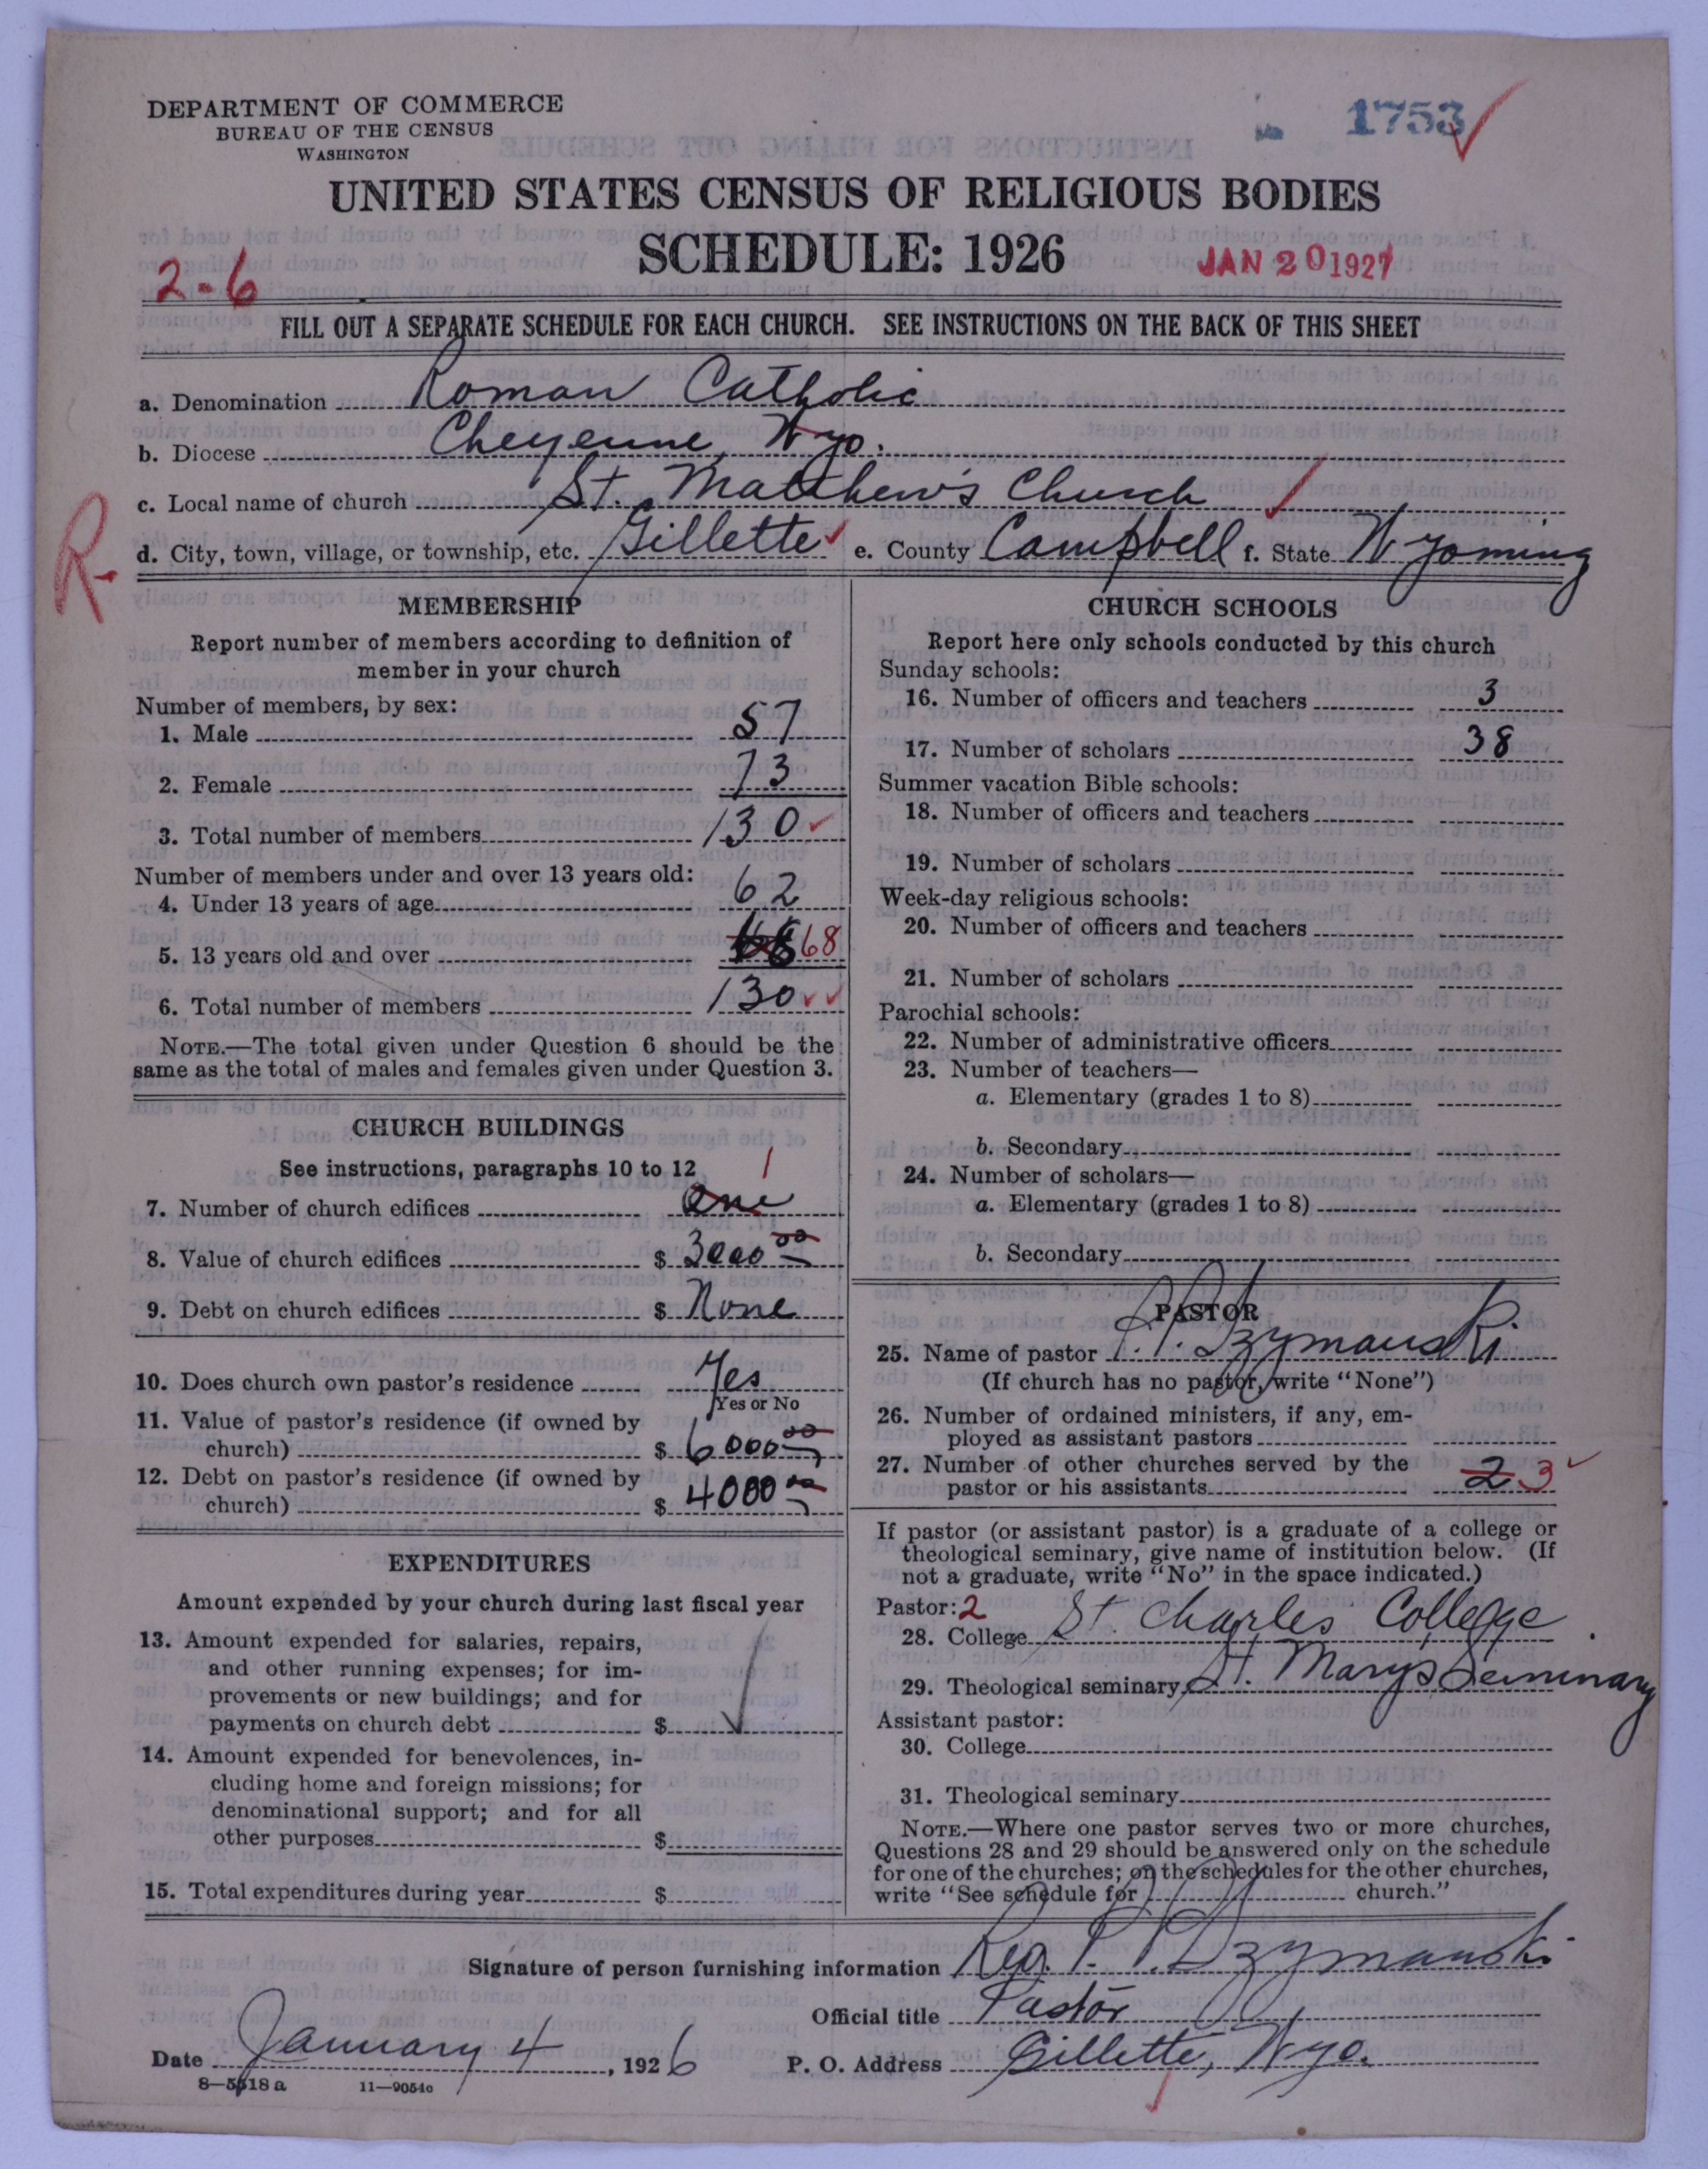 DEPARTMENT OF COMMERCE
BUREAU OF THE CENSUS
WASHINGTON
1753
UNITED STATES CENSUS OF RELIGIOUS BODIES
SCHEDULE: 1926
JAN 20 1927
2-6
FILL OUT A SEPARATE SCHEDULE FOR EACH CHURCH. SEE INSTRUCTIONS ON THE BACK OF THIS SHEET
a. Denomination Roman Catholic
b. Diocese Cheyenne, Wyo.
c. Local name of church St. Matthew's Church
R
d. City, town, village, or township, etc. Gillette e. County Campbell f. State Wyoming
MEMBERSHIP
Report number of members according to definition of
member in your church
Number of members, by sex:
1. Male 57
2. Female 73
3. Total number of members 130
Number of members under and over 13 years old:
4. Under 13 years of age 62
5. 13 years old and over 68
6. Total number of members 130
NOTE.—The total given under Question 6 should be the
same as the total of males and females given under Question 3.
CHURCH BUILDINGS
See instructions, paragraphs 10 to 12
1
7. Number of church edifices One
8. Value of church edifices $ 3000 00
9. Debt on church edifices $ None
10. Does church own pastor's residence Yes
Yes or No
11. Value of pastor's residence (if owned by
church) $ 6000 00
12. Debt on pastor's residence (if owned by
church) $ 4000 00
EXPENDITURES
Amount expended by your church during last fiscal year
13. Amount expended for salaries, repairs,
and other running expenses; for im-
provements or new buildings; and for
payments on church debt $
14. Amount expended for benevolences, in-
cluding home and foreign missions; for
denominational support; and for all
other purposes $
15. Total expenditures during year $
CHURCH SCHOOLS
Report here only schools conducted by this church
Sunday schools:
16. Number of officers and teachers 3
17. Number of scholars 38
Summer vacation Bible schools:
18. Number of officers and teachers
19. Number of scholars
Week-day religious schools:
20. Number of officers and teachers
21. Number of scholars
Parochial schools:
22. Number of administrative officers
23. Number of teachers—
a. Elementary (grades 1 to 8)
b. Secondary
24. Number of scholars—
a. Elementary (grades 1 to 8)
b. Secondary
PASTOR
25. Name of pastor P. P. Szymanski
(If church has no pastor, write "None")
26. Number of ordained ministers, if any, em-
ployed as assistant pastors
27. Number of other churches served by the
pastor or his assistants 2 3
If pastor (or assistant pastor) is a graduate of a college or
theological seminary, give name of institution below. (If
not a graduate, write "No" in the space indicated.)
Pastor: 2
28. College St. Charles College
29. Theological seminary St. Marys Seminary
Assistant pastor:
30. College
31. Theological seminary
NOTE.—Where one pastor serves two or more churches,
Questions 28 and 29 should be answered only on the schedule
for one of the churches; on the schedules for the other churches,
write "See schedule for church."
Signature of person furnishing information Rev. P. P. Szymanski
Official title Pastor
Date January 4, 1926 P. O. Address Gillette, Wyo.
8—5518 a 11—9054c